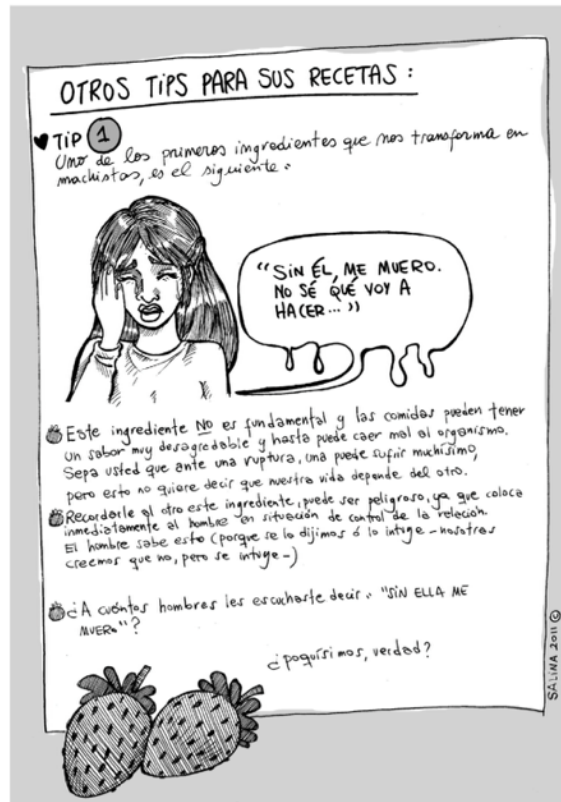 OTROS TIPS PARA SUS RECETAS:
TIP 1
Uno de los primeros ingredientes que nos transforma en
machistas, es el siguiente:
"SIN ÉL, ME MUERO.
NO SÉ QUÉ VOY A
HACER..."
Este ingrediente NO es fundamental y las comidas pueden tener
un sabor muy desagradable y hasta puede caer mal al organismo.
Sepa usted que ante una ruptura, una puede sufrir muchísimo,
pero esto no quiere decir que nuestra vida depende del otro.
Recordarle al otro este ingrediente, puede ser peligroso, ya que coloca
inmediatamente al hombre en situación de control de la relación.
El hombre sabe esto (porque se lo dijimos ó lo intuye - nosotras
creemos que no, pero se intuye -)
¿A cuántos hombres les escuchaste decir: "SIN ELLA ME
MUERO"?
¿poquísimos, verdad?
SALINA 2011 ©